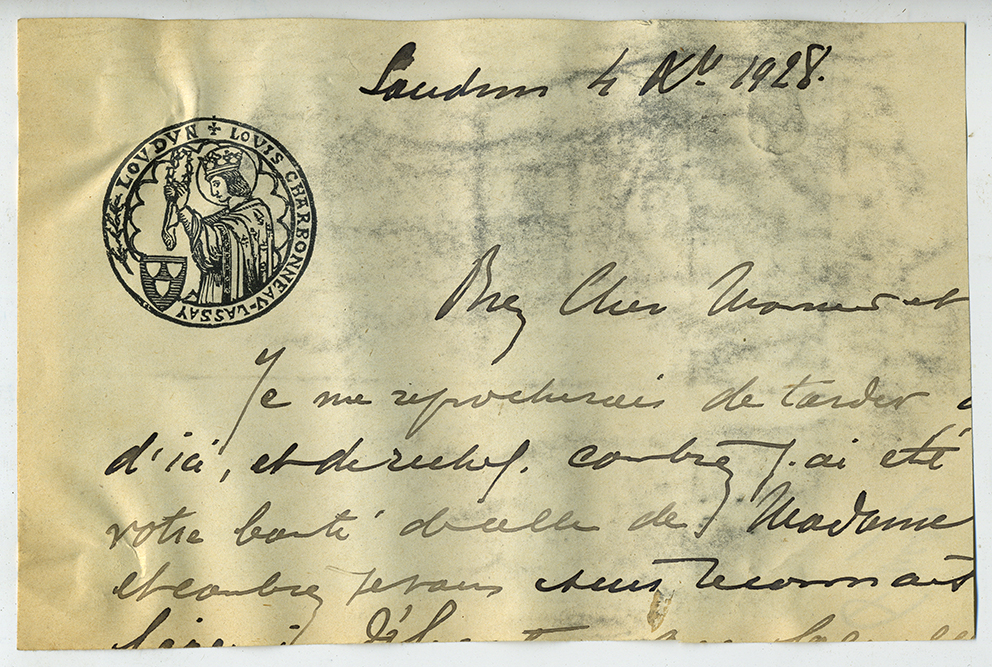 Loudun 4 Xbre 1928.
LOVDVN ✢ LOVIS CHARBONNEAV-LASSAY
Cher Monsieur et
Je me reprocherais de tarder
d'ici, et derechef. combien j'ai été
votre bonté de celle de Madame
et combien je vous suis reconnais